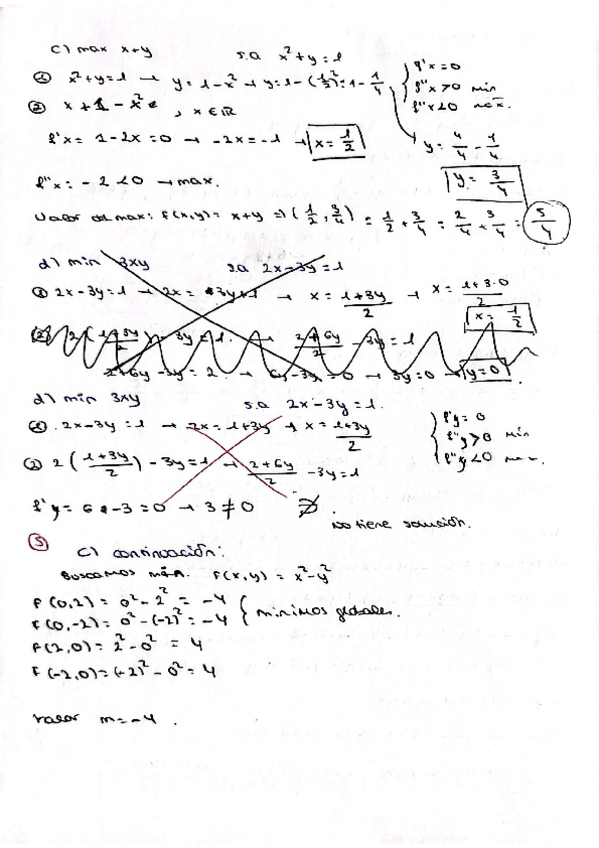 c) max x+y s.a x²+y=1
① x²+y=1 → y=1-x² → y=1-(1/2)²=1-1/4 { f'x=0
f''x>0 min
② x+1-x² , x∈ℝ f''x<0 max.
f'x= 1-2x=0 → -2x=-1 → x=1/2 y= 4/4 - 1/4
f''x= -2<0 → max. y= 3/4
Valor del max: f(x,y)= x+y => (1/2, 3/4) = 1/2 + 3/4 = 2/4 + 3/4 = 5/4
d) min 3xy s.a 2x-3y=1
① 2x-3y=1 → 2x= 3y+1 → x= 1+3y/2 → x= 1+3·0/2
x= 1/2
② 2(1+3y/2) - 3y=1. → 2+6y/2 - 3y=1
2+6y-3y= 2. → 6y-3y=0 → 3y=0 → y=0.
d) min 3xy s.a 2x-3y=1. { f'y=0
① 2x-3y=1 → 2x=1+3y → x= 1+3y/2 f''y>0 min
② 2(1+3y/2) - 3y=1 → 2+6y/2 - 3y=1 f''y<0 max.
f'y= 6-3=0 → 3≠0 ∄.
No tiene solución.
⑤ c) continuación:
Buscamos mín. f(x,y)= x²-y²
f(0,2)= 0²-2²= -4 {
f(0,-2)= 0²-(-2)²= -4 mínimos globales.
f(2,0)= 2²-0²= 4
f(-2,0)= (-2)²-0²= 4
Valor m=-4.